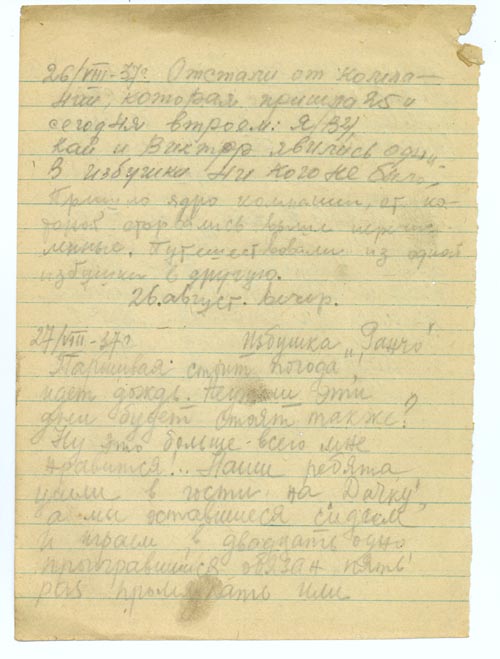 26/VIII-37г. Отстали от компа-
нии, которая пришла 25 и
сегодня втроем: я/ВЧ,
Кай и Виктор явились одни
В избушки ни кого не было,
Пришло ядро компании, от ко-
торой оторвались выше перечис-
ленные. Путешествовали из одной
избушки в другую.
26. август. вечер.
27/VIII-37г. Избушка „Ранчо"
Паршивая стоит погода,
идет дождь. Неужели эти
дни будет стоят также?
Ну это больше всего мне
нравится!.. Наши ребята
ушли в гости на „Дачку",
а мы оставшиеся сидем
и играем в двадцать одно
проигравшийся обязан пять
раз промяукать или